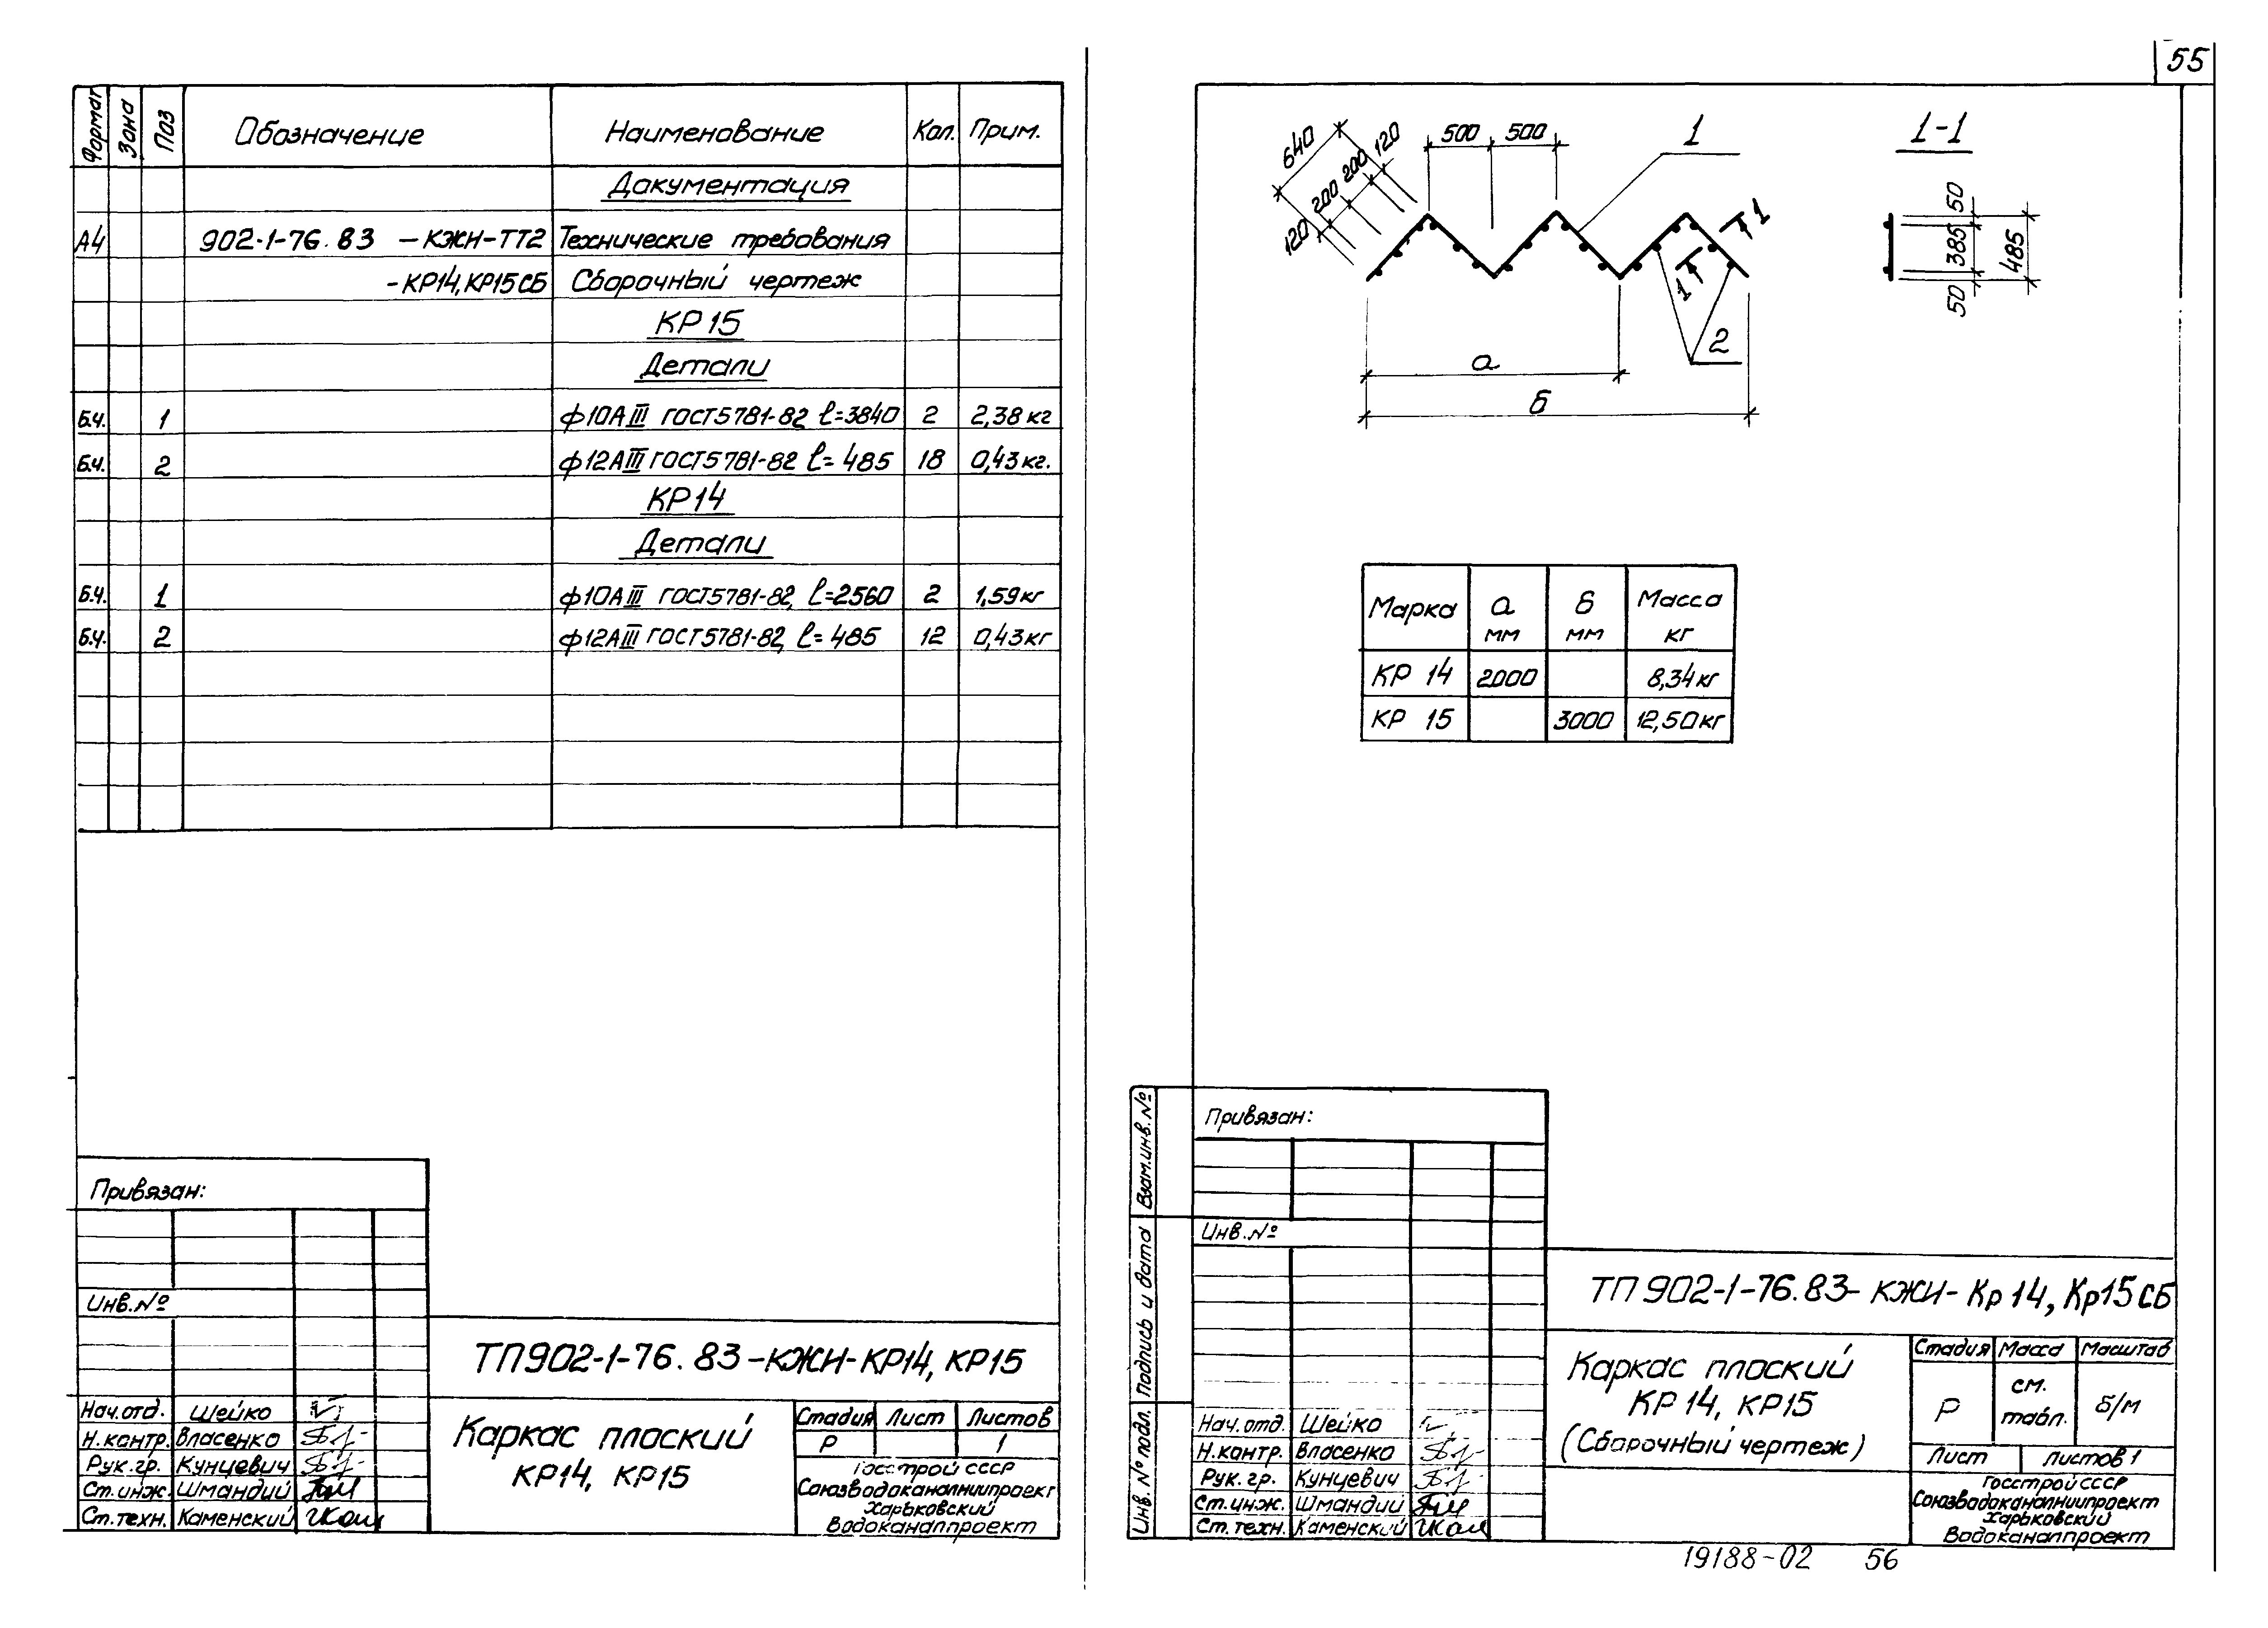 Формат Зона Поз Обозначение Наименование Кол. Прим.
Документация
А4 902-1-76.83 -КЖИ-ТТ2 Технические требования
-КР14,КР15СБ Сборочный чертеж
КР15
Детали
Б.Ч. 1 ф10АIII ГОСТ5781-82 ℓ=3840 2 2,38 кг
Б.Ч. 2 ф12АIII ГОСТ5781-82 ℓ= 485 18 0,43 кг.
КР14
Детали
Б.Ч. 1 ф10АIII ГОСТ5781-82, ℓ=2560 2 1,59кг
Б.Ч. 2 ф12АIII ГОСТ5781-82, ℓ= 485 12 0,43кг
Привязан:
Инв.№
ТП902-1-76.83-КЖИ-КР14, КР15
Нач.отд. Шейко
Н.контр. Власенко
Рук.гр. Кунцевич
Ст.инж. Шмандий
Ст.техн. Каменский
Каркас плоский
КР14, КР15
Стадия Лист Листов
Р 1
Госстрой СССР
Союзводоканалниипроект
Харьковский
Водоканалпроект
55
640
120 200 200 120
500 500
1
1
1
2
а
б
1-1
50
385
50
485
Марка а мм б мм Масса кг
КР 14 2000 8,34кг
КР 15 3000 12,50кг
Взам.инв.№
Подпись и дата
Инв.№ подл.
Привязан:
Инв.№
ТП 902-1-76.83- КЖИ- Кр14, Кр15 СБ
Нач.отд. Шейко
Н.контр. Власенко
Рук. гр. Кунцевич
Ст.инж. Шмандий
Ст.техн. Каменский
Каркас плоский
КР 14, КР15
(Сборочный чертеж)
Стадия Масса Масштаб
Р см. табл. б/м
Лист Листов 1
Госстрой СССР
Союзводоканалниипроект
Харьковский
Водоканалпроект
19188-02 56